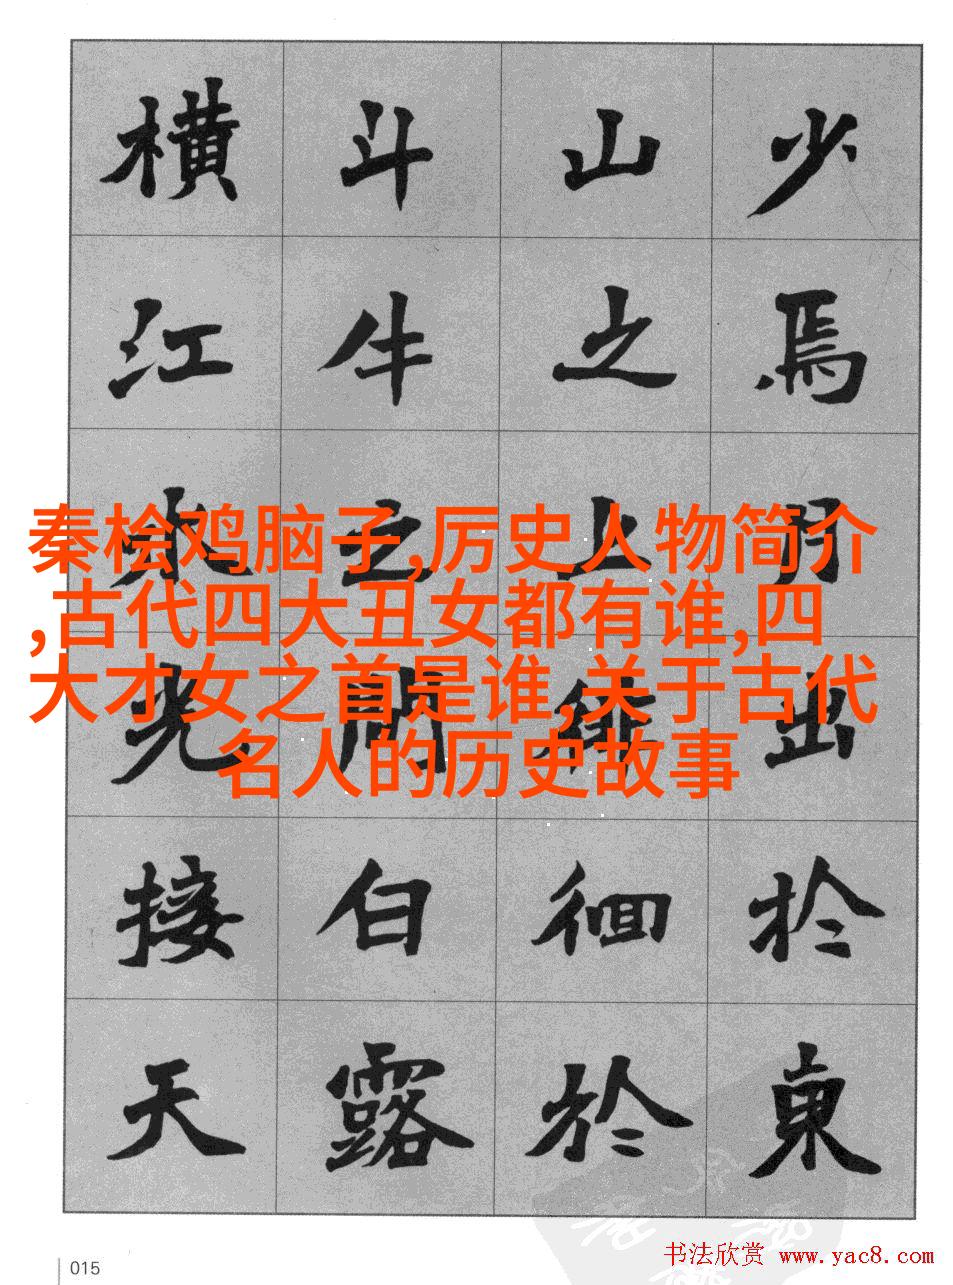 少焉月出於東
山之上徘徊於
斗牛之間白露
橫江水光接天
秦桧鸡脑子,历史人物简介
,古代四大丑女都有谁,四
大才女之首是谁,关于古代
名人的历史故事
015
书法欣赏 www.yac8.com